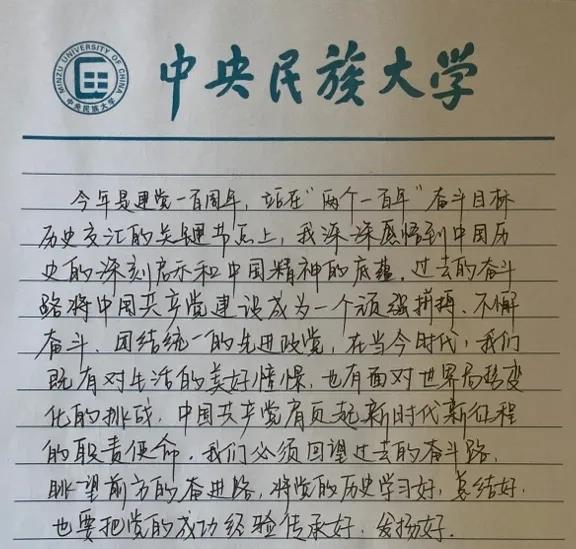 MINZU UNIVERSITY OF CHINA
中央民族大学
中央民族大学
今年是建党一百周年，站在“两个一百年”奋斗目标
历史交汇的关键节点上，我深深感悟到中国历
史的深刻启示和中国精神的底蕴。过去的奋斗
路将中国共产党建设成为一个顽强拼搏、不懈
奋斗、团结统一的先进政党，在当今时代，我们
既有对生活的美好憧憬，也有面对世界局势变
化的挑战，中国共产党肩负起新时代新征程
的职责使命。我们必须回望过去的奋斗路，
眺望前方的奋进路，将党的历史学习好，总结好，
也要把党的成功经验传承好，发扬好。